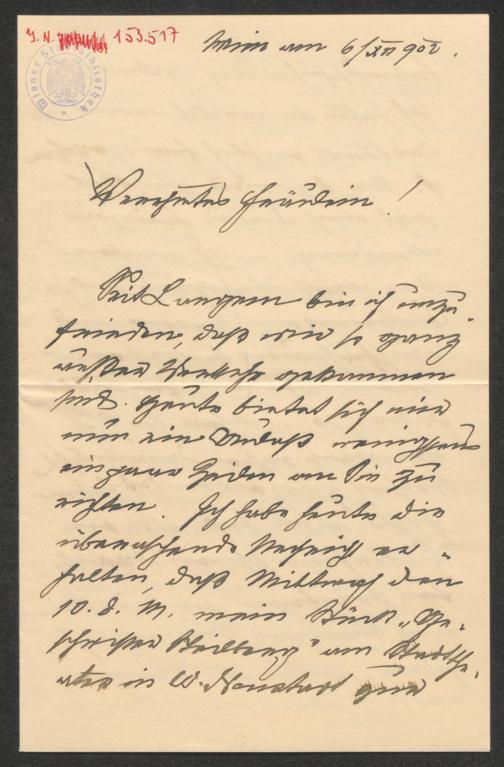 J. N. 153.517
Wiener Stadtbibliothek
Wien am 6/XII 902.
Verehrtes Fräulein!
Seit Langem bin ich unzu-
frieden, daß wir so ganz
außer Verkehr gekommen
sind. Heute bietet sich mir
nun ein Anlaß wenigstens
ein paar Zeilen an Sie zu
richten. Ich habe heute die
überraschende Nachricht er-
halten, daß Mittwoch den
10. d. M. mein Stück „Ge-
schwister" am Stadtthe-
ater in W. Neustadt zur